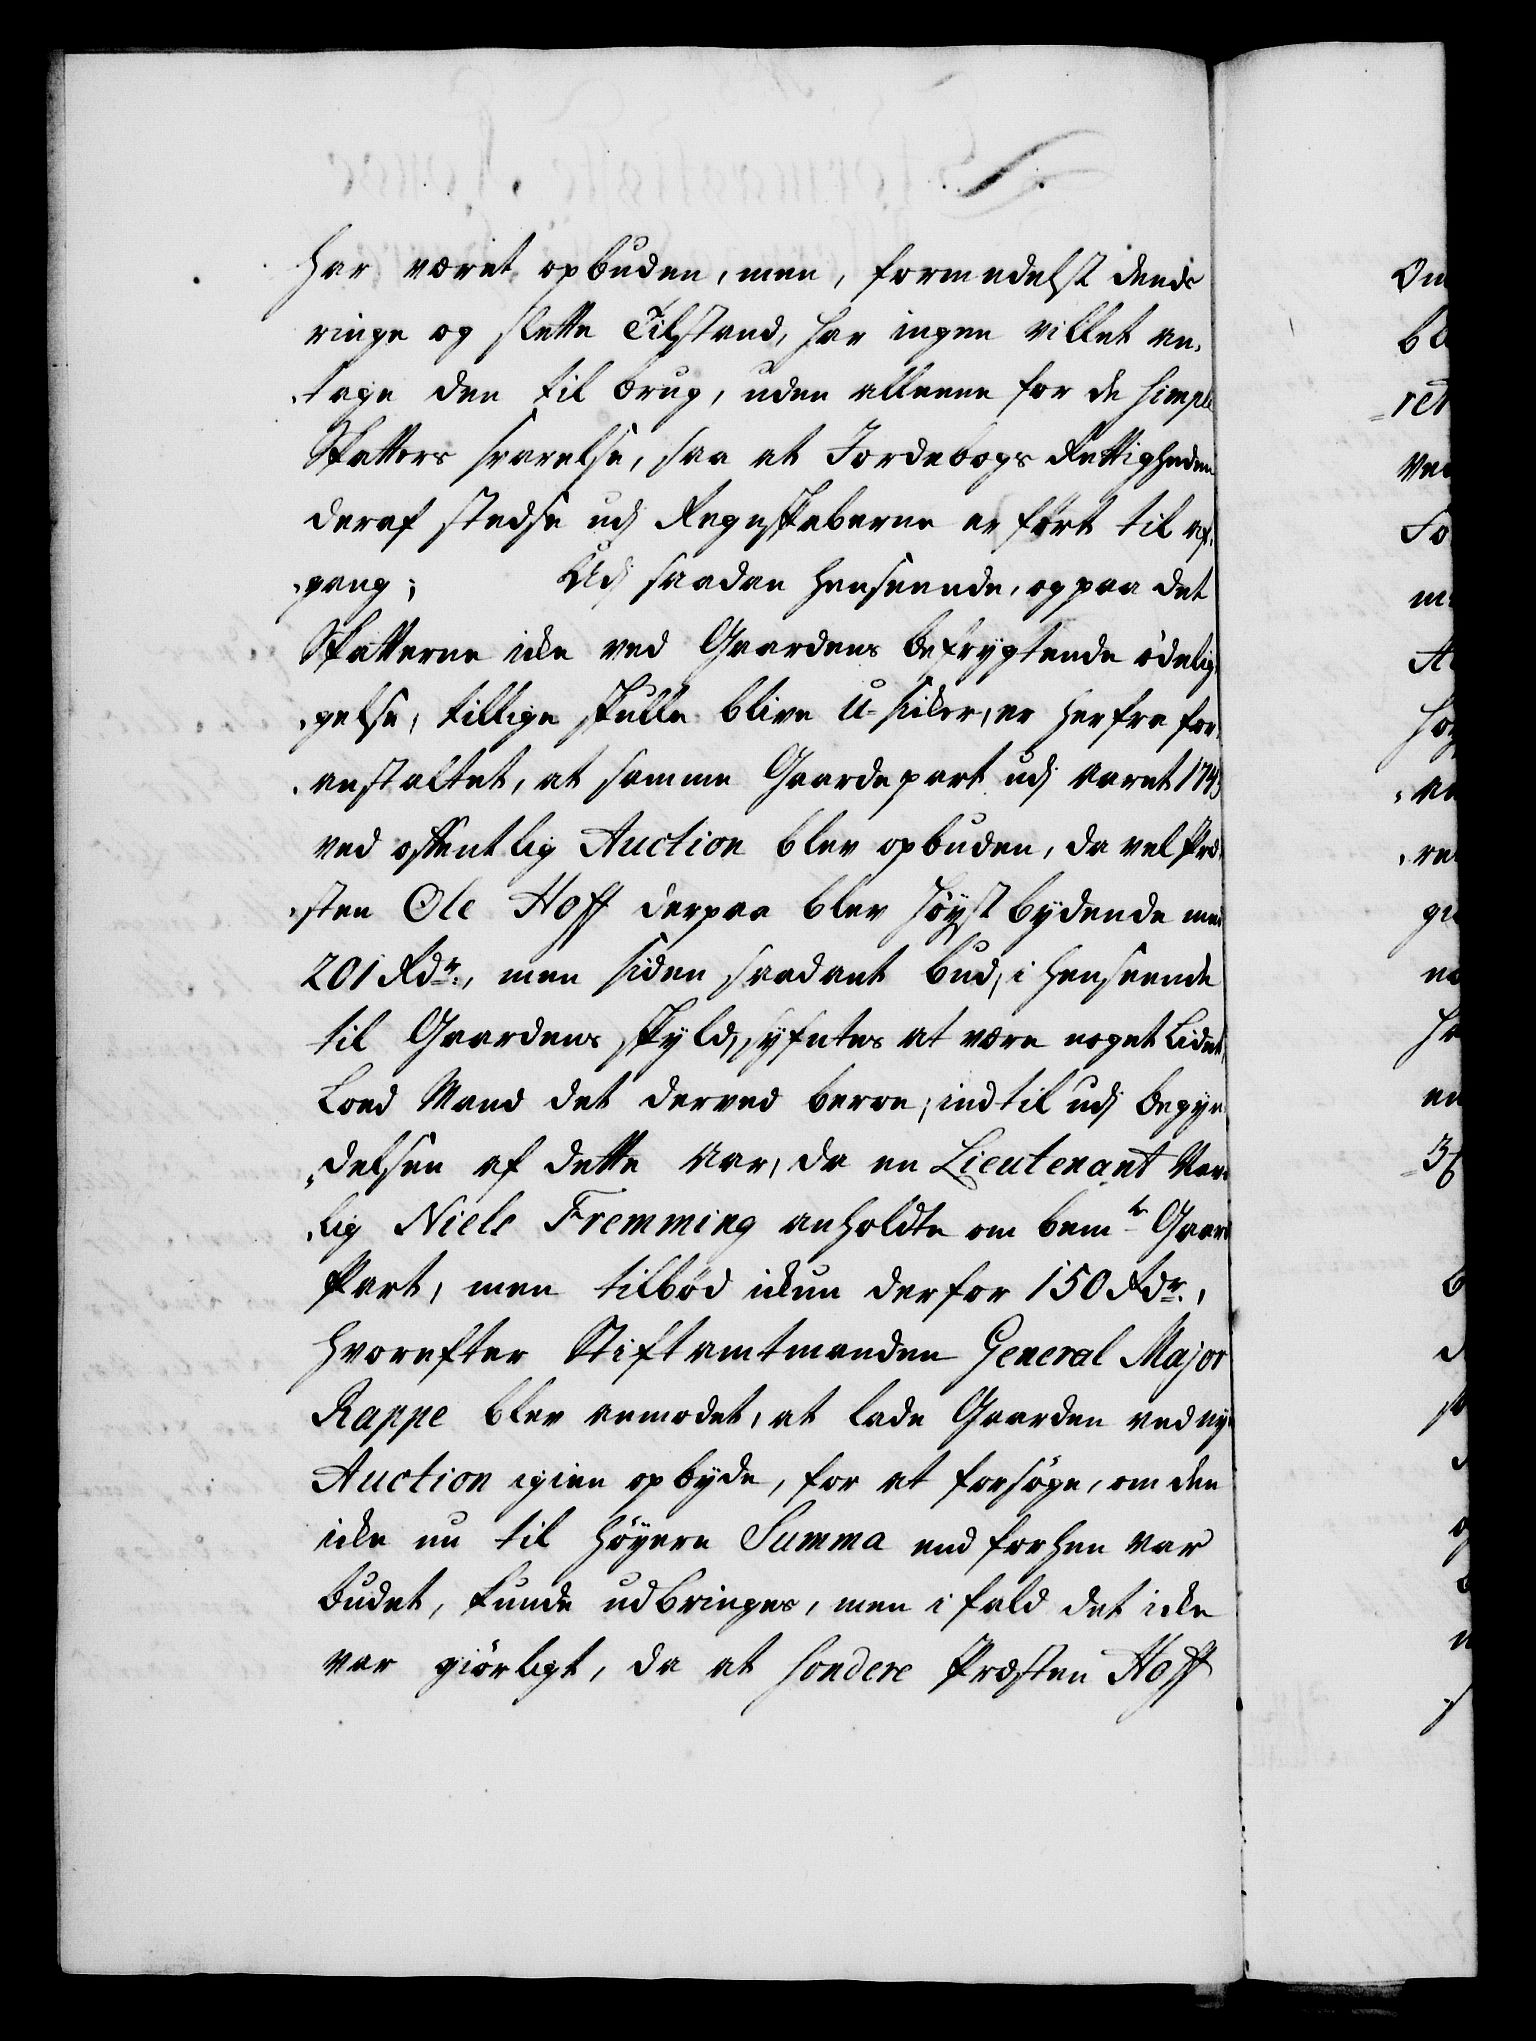 har været opbuden, men, formedelst dends
ringe og slette Tilstand, har ingen villet an-
-tage den til brug, uden alleene for de simple
Skatters svarelse, saa at Jordebogs Rettigheden
deraf stedse udj Regnskaberne er ført til af-
-gang; Udj saadan henseende, og paa det
Skatterne icke ved Gaardens befrygtende ödelig-
-gelse, tillige skulle blive U-sicker, er herfra for-
-anstaltet, at samme Gaardepart udj aaret 1743
ved offentlig Auction blev opbuden, da vel Præ-
-sten Ole Hoff derpaa blev høyst bydende med
201 Rdr., men siden saadant bud, i henseende
til Gaardens skyld, syfntes at være noget Lidet,
Loed Mand det derved beroe, indtil udj begyn-
-delsen af dette Aar, da en Lieutenant Nav-
-lig Niels Fremming anholdte om bemte Gaard
Part, men tilbød ickun derfor 150 Rdr.,
hvorefter Stiftamtmanden General Major
Rappe blev anmodet, at lade Gaarden ved ny
Auction igien opbyde, for at forsøge, om den
icke nu til høyere Summa end forhen var
budet, kunde udbringes, men i fald det icke
var giørligt, da at sondere Præsten Hoff